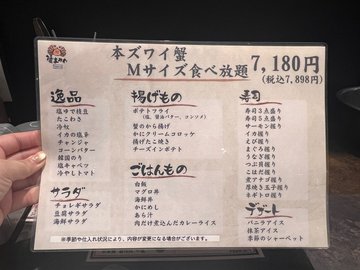 本ズワイ蟹
Mサイズ食べ放題 7,180円
(税込7,898円)
逸品
塩ゆで枝豆
たこわさ
冷奴
イカの塩辛
チャンジャ
コーンバター
韓国のり
塩キャベツ
冷やしトマト
サラダ
チョレギサラダ
豆腐サラダ
海鮮サラダ
揚げもの
ポテトフライ
(塩、醤油バター、コンソメ)
蟹のから揚げ
かにクリームコロッケ
揚げたこ焼き
チーズインポテト
ごはんもの
白飯
マグロ丼
海鮮丼
かにめし
あら汁
肉だけ煮込んだカレーライス
寿司
寿司3点盛り
寿司5点盛り
サーモン握り
イカ握り
えび握り
まぐろ握り
うなぎ握り
つぶ貝握り
こはだ握り
煮アナゴ握り
厚焼き玉子握り
ネギトロ握り
デザート
バニラアイス
抹茶アイス
季節のシャーベット
※季節や仕入れ状況により、内容が変更になる場合がございます。